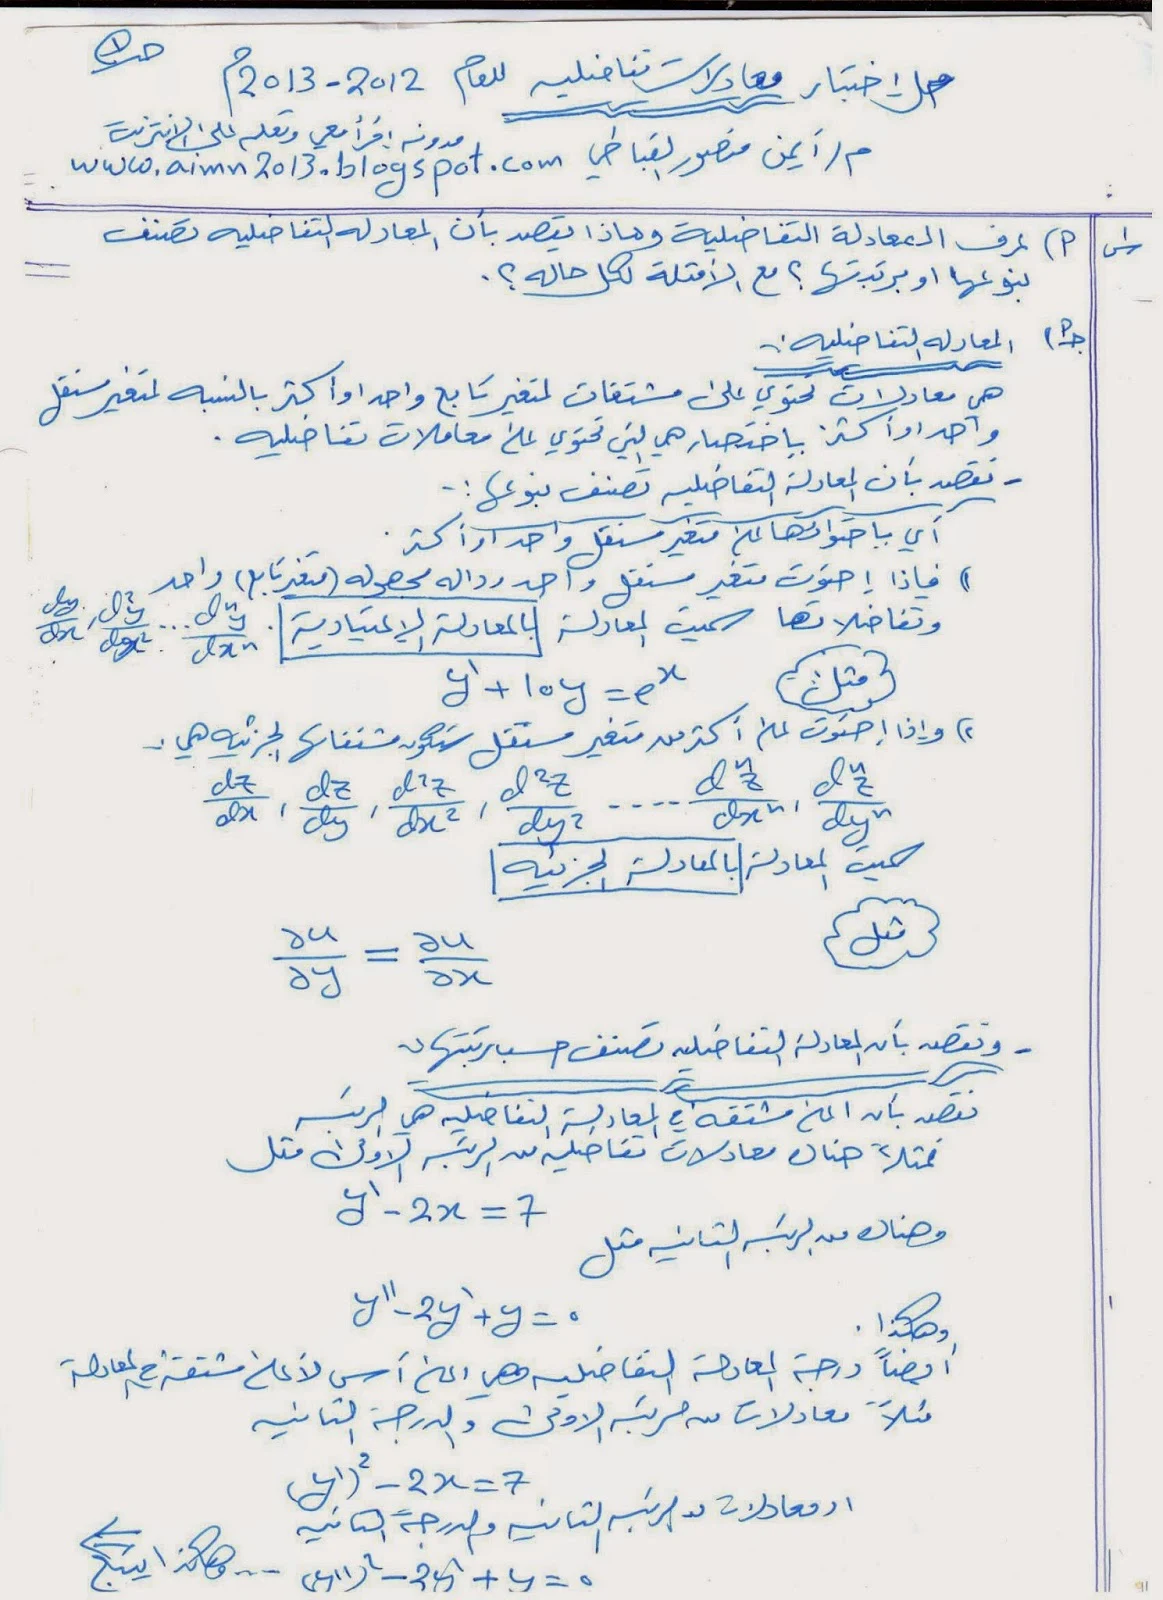 ص(١)
حل إختبار معادلات تفاضليه للعام 2012-2013م
مدونه إقرأ معي وتعلم على الإنترنت
م/أيمن منصور القباطي www.aimn2013.blogspot.com
س١ P) عرف المعادلة التفاضلية وماذا يقصد بأن المعادله التفاضليه تصنف
بنوعها او برتبتها ؟ مع الأمثلة لكل حاله ؟.
جـ P) المعادله التفاضليه :-
هي معادلات تحتوي على مشتقات لمتغير تابع واحد او أكثر بالنسبه لمتغير مستقل
واحد او أكثر: بإختصار هي التي تحتوي على معاملات تفاضليه .
- نقصد بأن المعادلة التفاضليه تصنف بنوعها :-
أي باحتوائها على متغير مستقل واحد او أكثر .
١) فإذا إحتوت متغير مستقل واحد وداله مجهوله (متغير تابع) واحد
وتفاضلاتها سميت المعادلة بالمعادلة الإعتيادية . dy/dx , d²y/dx² ... dⁿy/dxⁿ
مثل: y' + 10y = e^x
٢) وإذا إحتوت على أكثر من متغير مستقل ستكون مشتقاتها الجزئيه هي :-
dz/dx , dz/dy , d²z/dx² , d²z/dy² ---- dⁿz/dxⁿ , dⁿz/dyⁿ
سميت المعادلة بالمعادلة الجزئيه
مثل
∂u/∂y = ∂u/∂x
- ونقصد بأن المعادلة التفاضليه تصنف حسب رتبتها :-
نقصد بأن اعلى مشتقه في المعادلة التفاضليه هي الرتبه
فمثلاً هناك معادلات تفاضليه من الرتبه الاولى مثل
y' - 2x = 7
وهناك من الرتبه الثانيه مثل
y'' - 2y' + y = 0
وهكذا .
أيضاً درجة المعادلة التفاضليه هي اعلى أس لأعلى مشتقة في المعادلة
مثلاً معادلات من الرتبه الاولى والدرجة الثانيه
(y')² - 2x = 7
او معادلات من الرتبه الثانيه والدرجة الثانيه
(y'')² - 2y' + y = 0 --- وهكذا يتبع